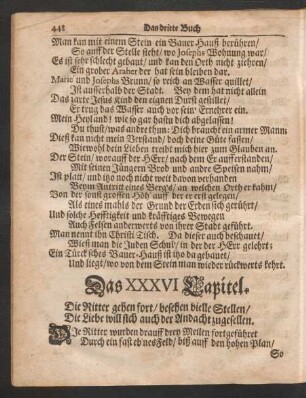 442 Das dritte Buch
Man kan mit einem Stein ein Bauer Hauß berühren/
So auff der Stelle steht/ wo Josephs Wohnung war/
Es ist sehr schlecht gebaut/ und kan den Orth nicht ziehren/
Ein grober Araber der hat sein bleiben dar.
Mario und Josephs Brunn/ so reich an Wasser quillet/
Ist ausserhalb der Stadt. Bey dem hat nicht allein
Das zarte Jesus Kind den eignen Durst gestillet/
Er trug das Wasser auch vor seine Ernehrer ein.
Mein Heyland! wie so gar hastu dich abgelassen!
Du thust/ was andre thun: Dich braucht ein armer Mann.
Diß kan nicht mein Verstand/ doch deine Güte fassen/
Wiewohl dein Lieben treibt mich hier zum Glauben an.
Der Stein/ worauff der HErr/ nach dem Er aufferstanden/
Mit seinen Jüngern Brod und andre Speisen nahm/
Ist platt/ und itzo noch nicht weit davon verhanden
Beym Antritt eines Bergs/ an welchen Orth er kahm/
Von der sonst grossen Höh' auff der er erst gelegen/
Als eines mahls der Grund der Erden sich gerührt/
Und solche Hefftigkeit und kräfftiges Bewegen
Auch Felsen anderwerts von ihrer Stadt geführt.
Man nennt ihn Christi Tisch. Da dieser auch beschauet/
Wieß man die Juden Schul/ in der der HErr gelehrt:
Ein Türcksches Bauer-Hauß ist itzo da gebauet/
Und liegt/ wo von dem Stein man wieder rückwerts kehrt.
Das XXXVI Capitel.
Die Ritter gehen fort/ besehen vielle Stellen/
Die Liebe will sich auch der Andacht zugesellen.
Die Ritter wurden drauff drey Meilen fortgeführet
Durch ein fast ebnes Feld/ biß auff den hohen Plan/
So